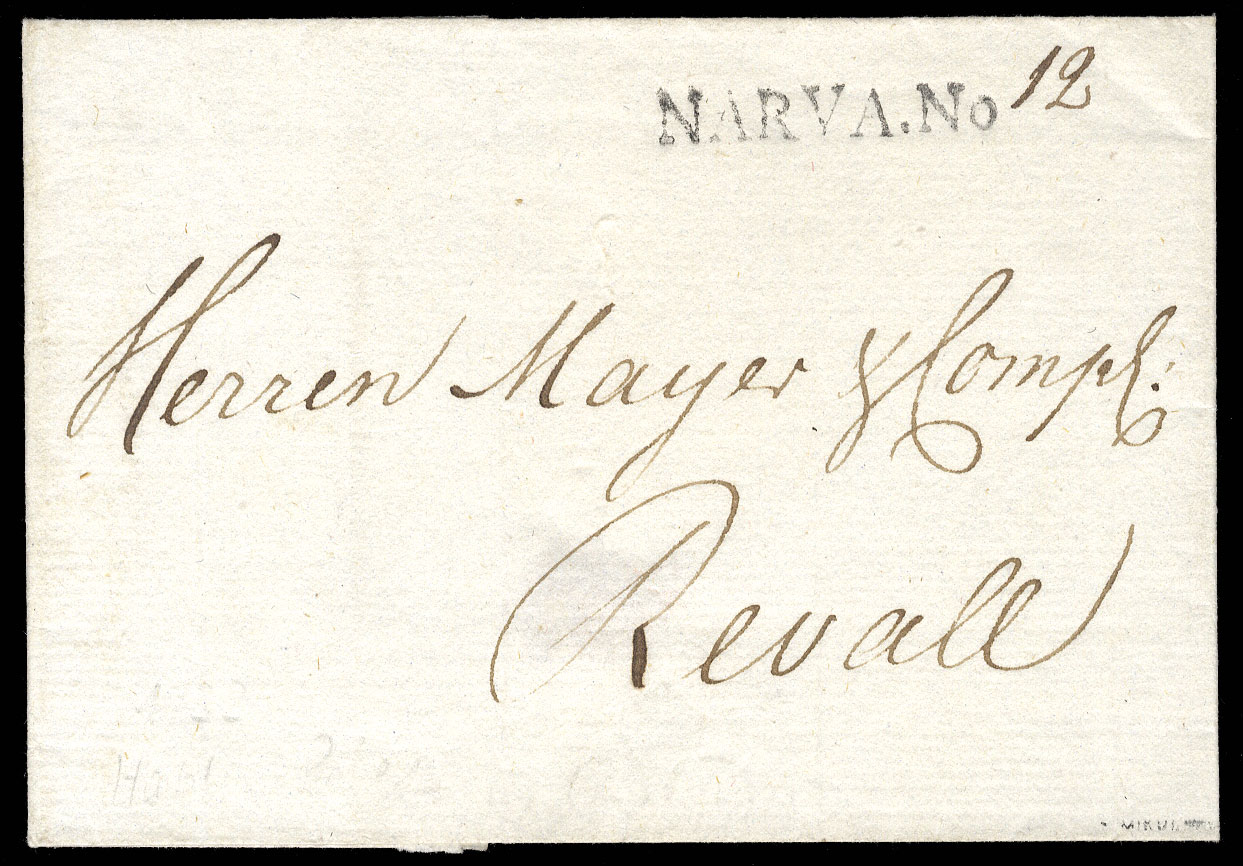 NARVA.No 12
Herren Mayer & Comp:
Revall